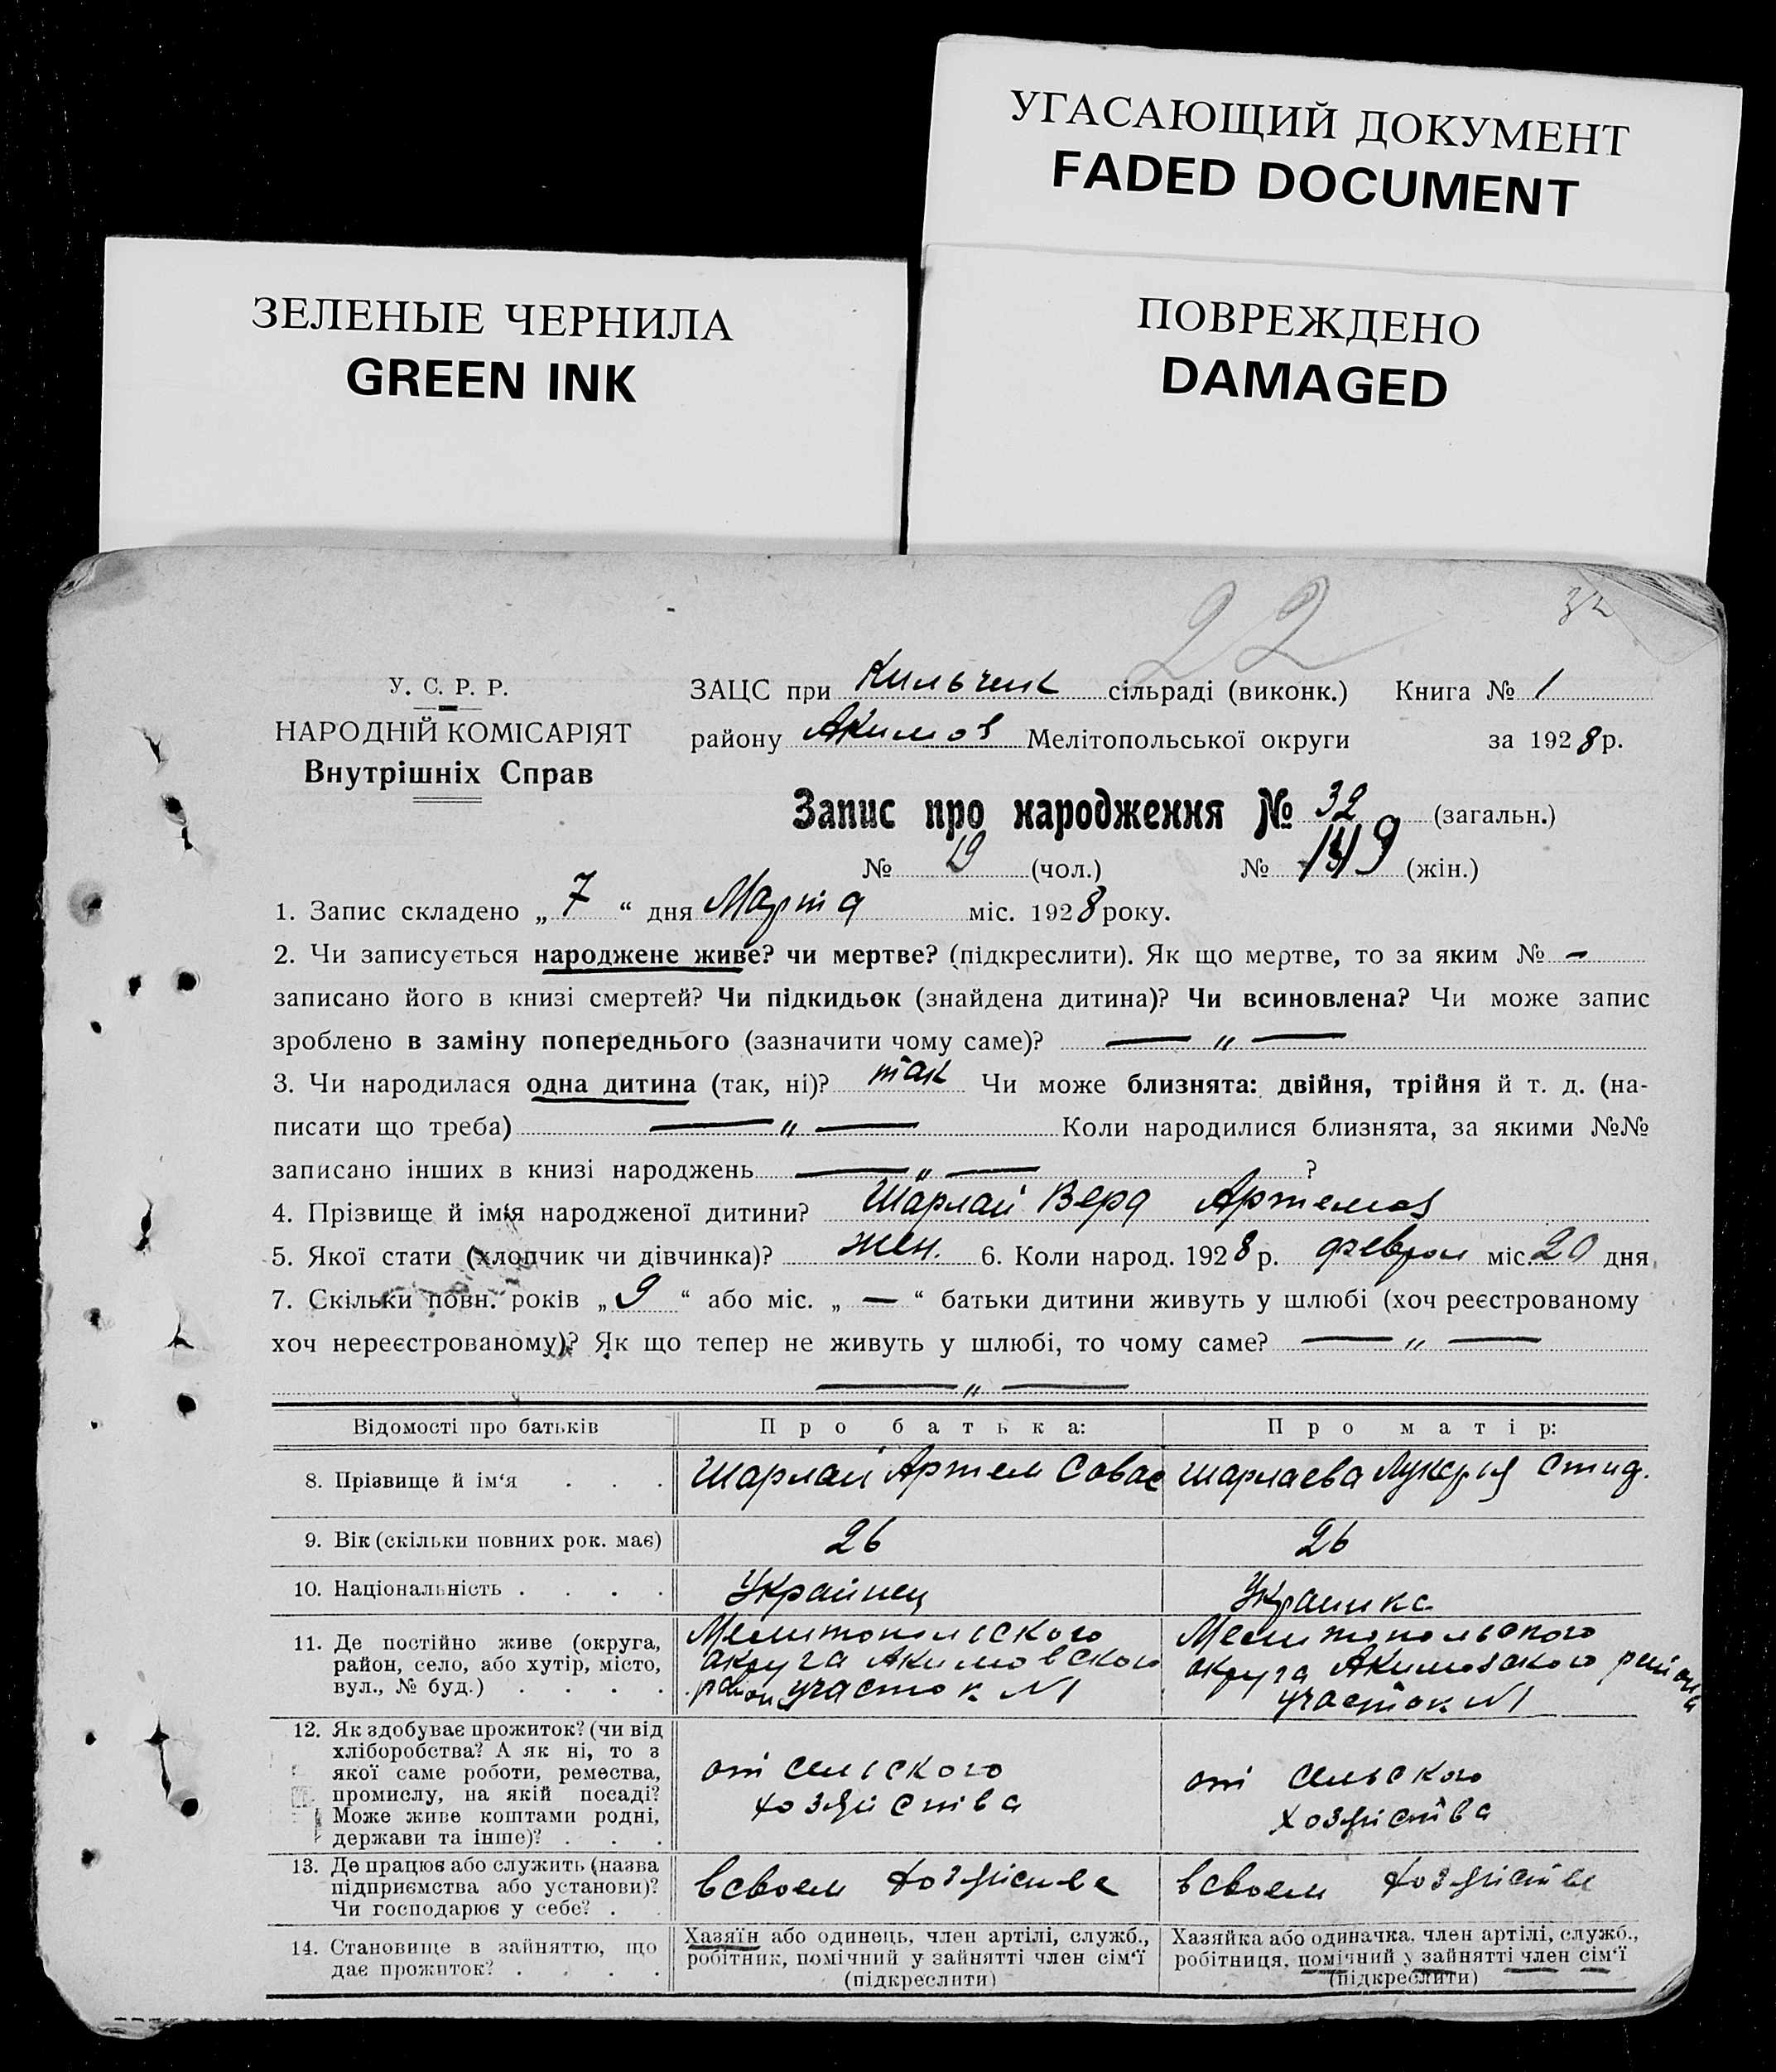 УГАСАЮЩИЙ ДОКУМЕНТ
FADED DOCUMENT
ЗЕЛЕНЫЕ ЧЕРНИЛА
GREEN INK
ПОВРЕЖДЕНО
DAMAGED
22
32
У. С. Р. Р.
НАРОДНІЙ КОМІСАРІЯТ
Внутрішніх Справ
ЗАЦС при Кильчик сільраді (виконк.) Книга № 1
району Акимов Мелітопольської округи за 1928 р.
Запис про народження № 32 (загальн.)
№ 19 (чол.) № (жін.)
1. Запис складено „ 7 “ дня Марта міс. 1928 року.
2. Чи записується народжене живе? чи мертве? (підкреслити). Як що мертве, то за яким № —
записано його в книзі смертей? Чи підкидьок (знайдена дитина)? Чи всиновлена? Чи може запис
зроблено в заміну попереднього (зазначити чому саме)? — „ —
3. Чи народилася одна дитина (так, ні)? так Чи може близнята: двійня, трійня й т. д. (на-
писати що треба) — „ — Коли народилися близнята, за якими №№
записано інших в книзі народжень — „ — ?
4. Прізвище й імʼя народженої дитини? Шарлай Вера Артемов
5. Якої стати (хлопчик чи дівчинка)? жен. 6. Коли народ. 1928 р. феврал міс. 20 дня
7. Скільки повн. років „ 9 “ або міс. „ — “ батьки дитини живуть у шлюбі (хоч реєстрованому
хоч нереєстрованому)? Як що тепер не живуть у шлюбі, то чому саме? — „ —
— „ —
Відомості про батьків Про батька: Про матір:
8. Прізвище й ім‘я . . . Шарлай Артем Савов Шарлаева Лукерья Спид.
9. Вік (скільки повних рок. має) 26 26
10. Національність . . . . Украйнец Украинка
11. Де постійно живе (округа,
район, село, або хутір, місто,
вул., № буд.) . . . .
Мелитопольского
округа Акимовского
район участок №1
Мелитопольского
округа Акимовского района
участок №1
12. Як здобуває прожиток? (чи від
хліборобства? А як ні, то з
якої саме роботи, ремества,
промислу, на якій посаді?
Може живе коштами родні,
держави та інше)? . . .
от сельского
хозяйства
от сельского
хозяйства
13. Де працює або служить (назва
підприємства або установи)?
Чи господарює у себе? . .
всвоем хозяйстве всвоем хозяйстве
14. Становище в зайняттю, що
дає прожиток? . . . .
Хазяїн або одинець, член артілі, служб.,
робітник, помічний у зайнятті член сім‘ї
(підкреслити)
Хазяйка або одиначка, член артілі, служб.,
робітниця, помічний у зайнятті член сім‘ї
(підкреслити)